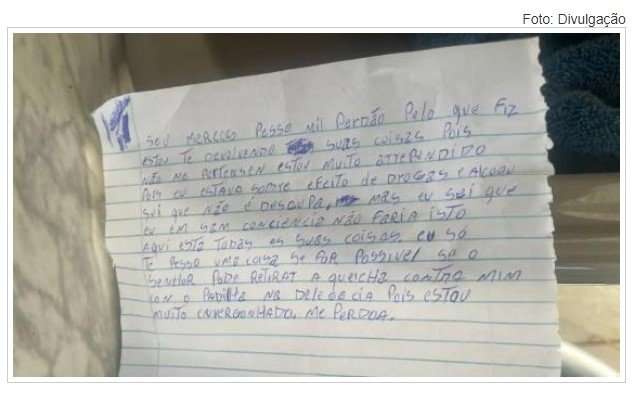 Foto: Divulgação
SEU MERCOS PESSO MIL PERDÃO PELO QUE FIZ
ESTOU TE DEVOLVENDO SUAS COISAS POIS
NÃO ME PERTENSEN ESTOU MUITO ARREPENDIDO
POIS EU ESTAVA SOBRE EFEITO DE DROGAS E ALCOOU
SEI QUE NÃO É DESCUPA, MAS EU SEI QUE
EU EM SAM CONCIENCIA NÃO FARIA ISTO
AQUI ESTA TODAS AS SUAS COISAS. EU SÓ
TE PESSO UMA COISA SE FOR POSSIVEL SE O
SENHOR PODE RETIRAR A QUEICHA CONTRA MIM
CON O PADILHA NA DELEGACIA POIS ESTOU
MUITO ENVERGONHADO. ME PERDOA.